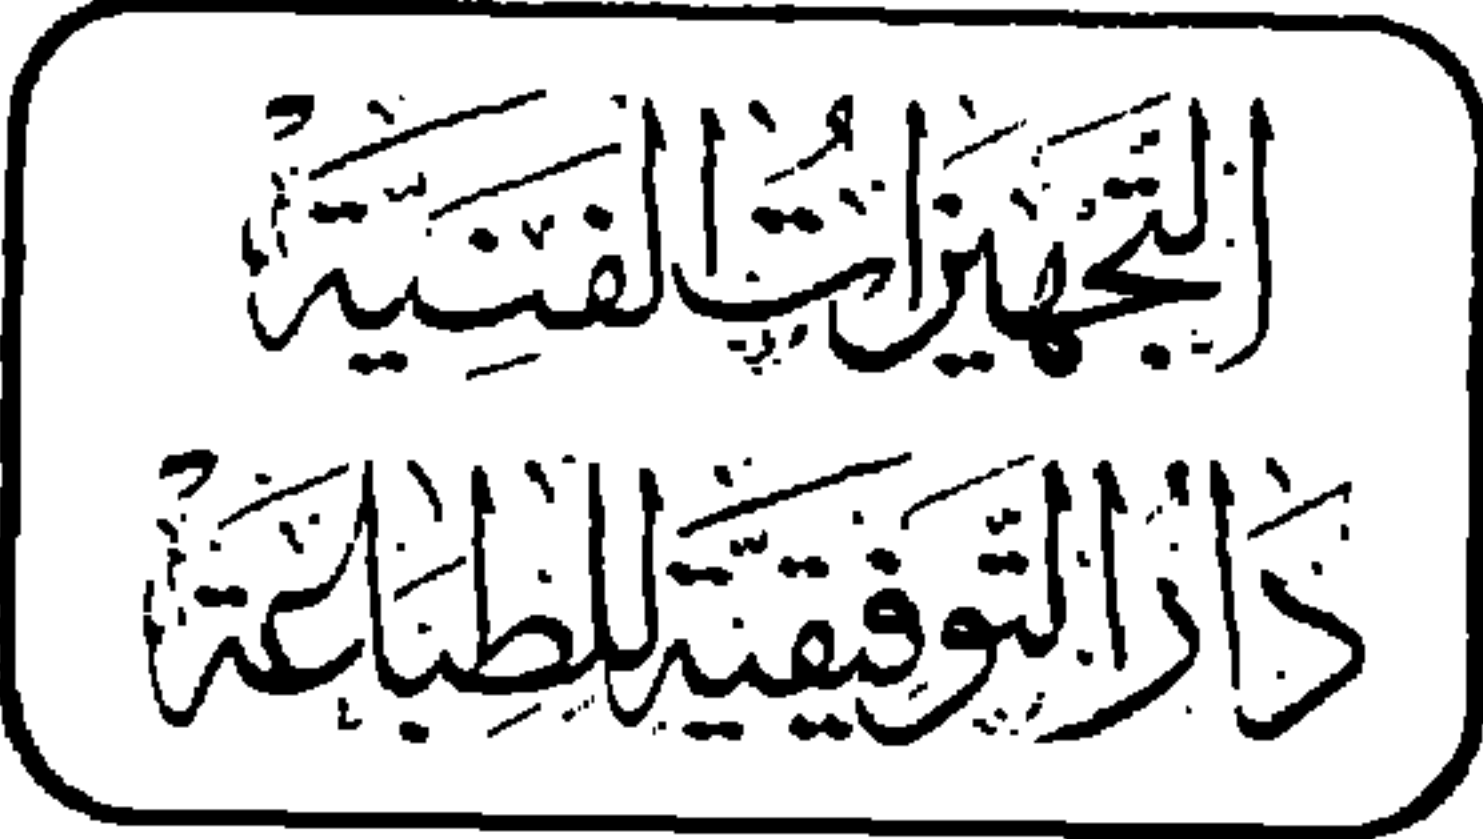 التَّجْهِيزَاتُ الفَنِّيَّةُ
دَارُ التَّوفِيقيَّة لِلطِّبَاعَة